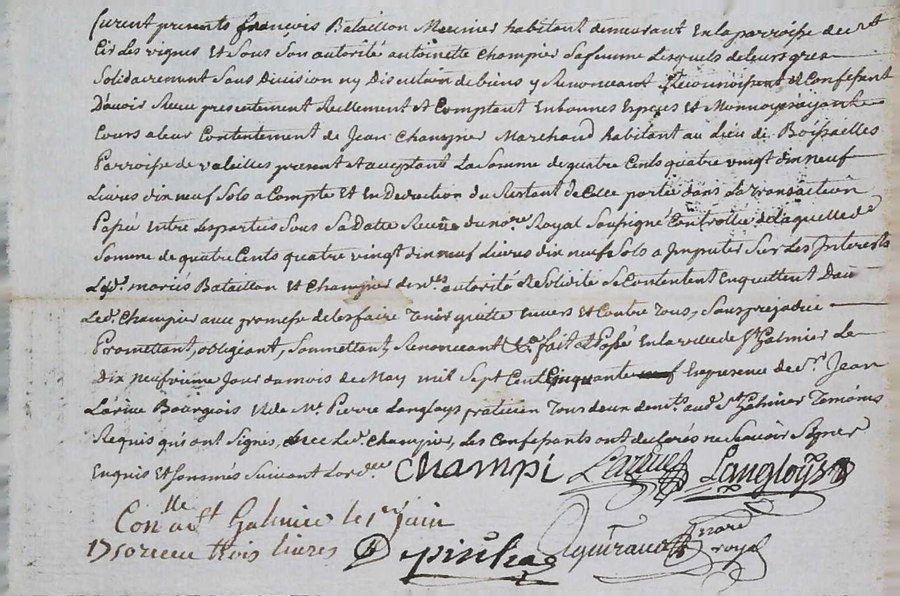 furent presents françois Bataillon Meunier habitant demeurant En la parroisse de
Cir Les vignes et Sous Son autorité antoinette Champier Sa femme Lesquels de leurs gres
Solidairement Sans Division ny Discution de biens y Renonceant Reconnoissent et Confessent
D'avoir Receu presentement Reellement et Comptant En bonnes Espces et Monnoye ayant
Cours a leur Contentement de Jean Champier Marchand habitant au lieu de Boissailles
Parroisse de valeilles present et acceptant La Somme de quatre Cents quatre vingt dix neuf
Livres dix neuf Sols a Compte et en Deduction du Restant de Cedée portée dans La transaction
Passée entre les parties Sous Sa Datte Receüe du no.re Royal Soussigné Controllée de laquelle de
Somme de quatre Cents quatre vingt dix neuf Livres dix neuf Sols a Imputer Sur Les Interests
Lesd. mariés Bataillon et Champier autorité Solidité Se Contentent En quittent
Led. Champier avec promesse de les faire Tenir quitte Envers et Contre Tous, Sans prejudice
Promettant, obligeant, Soumettant, Renonceant &a fait et Passé En la ville de St Galmier Le
Dix neufvieme Jour du mois de May mil Sept Cent Cinquante En presence de Sr Jean
Larüe Bourgeois et de Me Pierre Langloys praticien Tous deux demts. aud. St Galmier Temoins
Requis qui ont Signés, avec Led. Champier, Les Confessants ont declarés ne Scavoir Signer
Enquis et Sommés Suivant Lord.ce Champi Larüe Langloys
Conlle a St Galmier le 1er Juin
1750 receu trois livres Depinhac guiraud nore royal